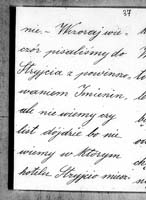 37
nie. – Wczoraj wie-
czór pisaliśmy do
Stryjcia z powinszo-
waniem Imienin,
ale nie wiemy czy
list dójdzie bo nie
wiemy w którym
hotelu Stryjcio miesz-